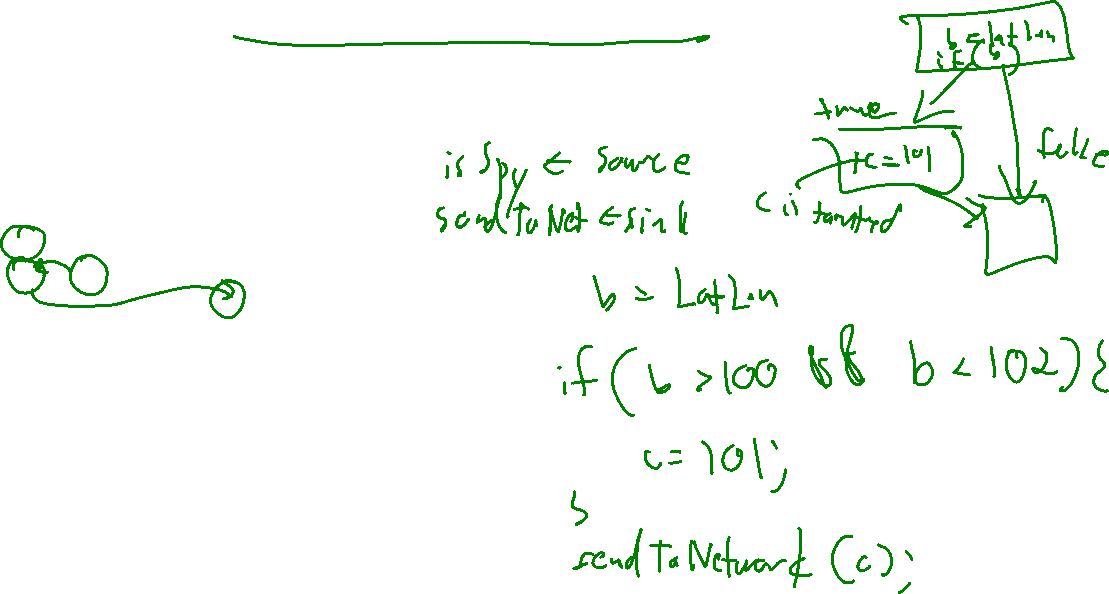 b = Lat Lon
if b
true
c = 101
false
c is tainted
is Spy ← source
send To Net ← sink
b = Lat Lon
if ( b > 100 && b < 102 ) {
c = 101;
}
send To Network (c);